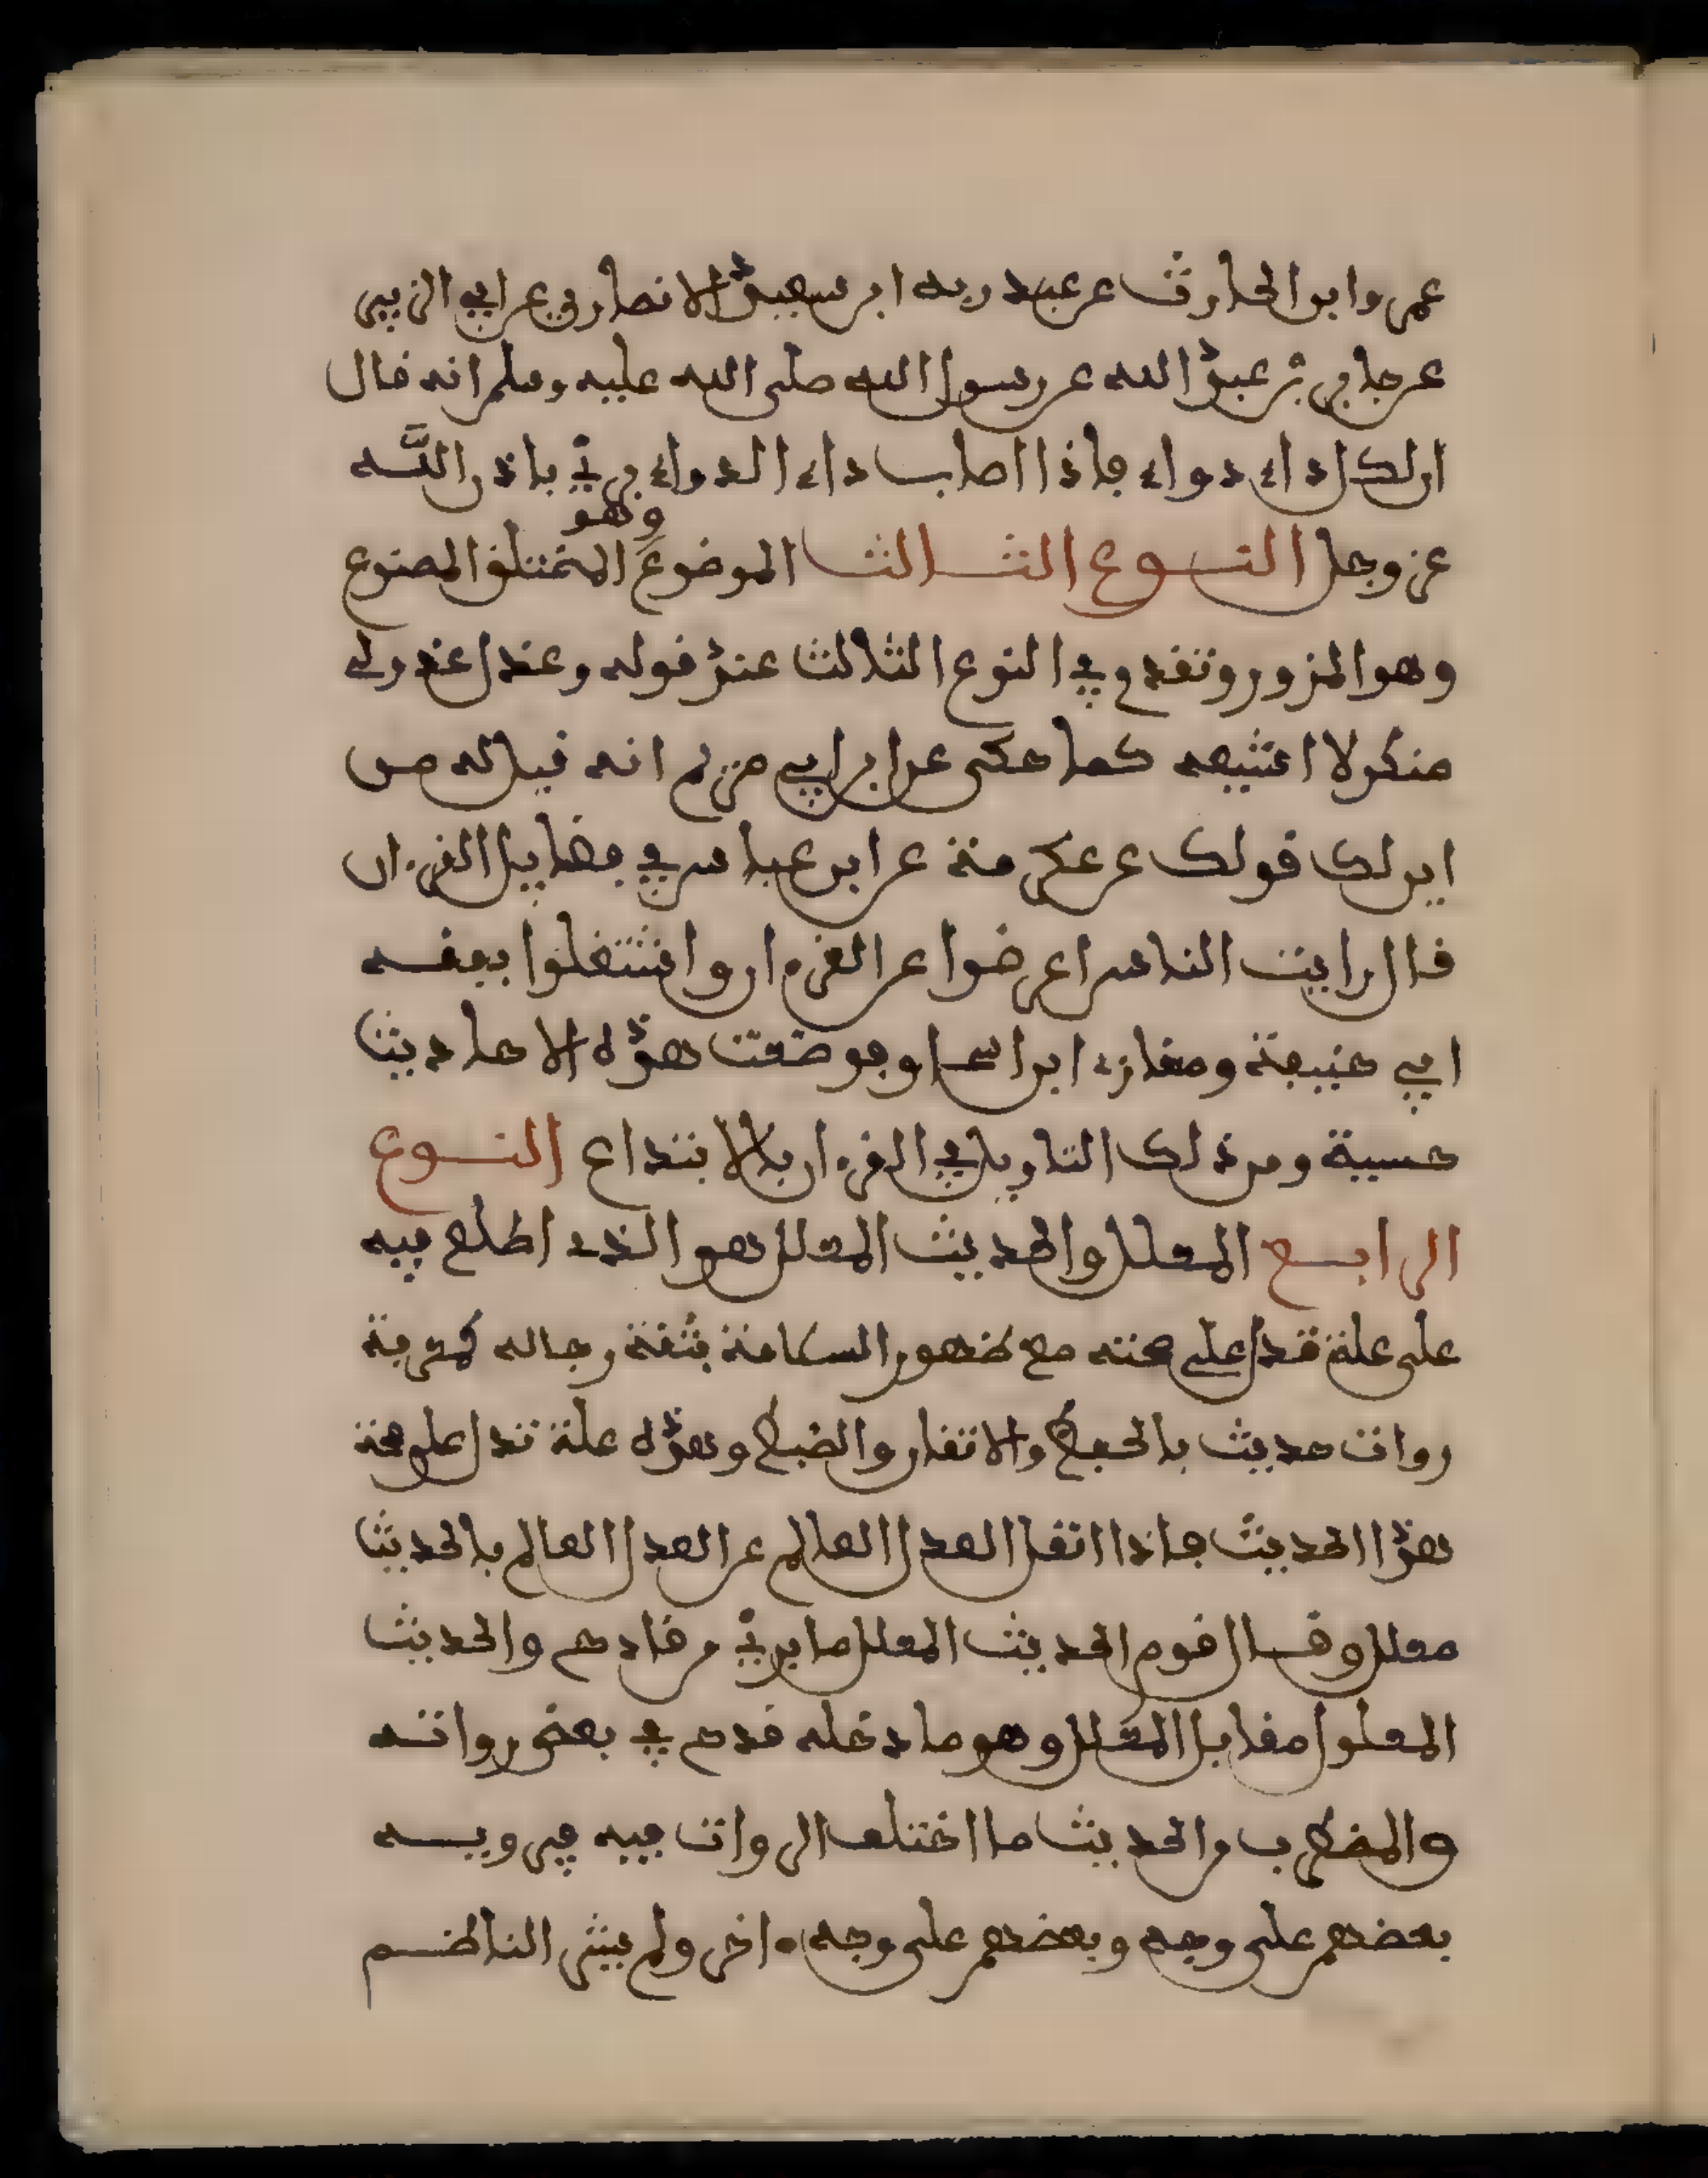 عمروا بن الحارث عن عبد ربه ابن سعيد الانصاري عن ابي الزبير
عن جابر بن عبد الله عن رسول الله صلى الله عليه وسلم انه قال
ان لكل داء دواء فاذا اصاب داء الدواء برئ باذن الله
عز وجل النوع الثالث الموضوع وهو المختلق المصنوع
وهو المزور وتقدم في النوع الثالث عند قوله وعذل عذولي
منكر لا اسيغه كما حكي عن ابن ابي مريم انه قيل له من
اين لك قولك عن عكرمة عن ابن عباس في فضايل القرءان
قال رايت الناس اعرضوا عن القرءان واشتغلوا بفقه
ابي حنيفة ومغازي ابن اسحاق فوضعت هذه الاحاديث
حسبة ومن ذلك التاويل في القرءان بالابتداع النوع
الرابع المعلل والحديث المعلل هو الذي اطلع فيه
على علة تدل على صحته مع ظهور السلامة بثقة رجاله كمعرفة
روات حديث بالحفظ والاتقان والضبط وهذه علة تدل على صحة
هذا الحديث فاذا انقل العدل العالم عن العدل العالم بالحديث
معلل وقال قوم الحديث المعلل ما برئ من قادح والحديث
المعلول مقابل المعلل وهو ما دخله قدح في بعض رواته
والمضطرب من الحديث ما اختلف الروات فيه فيرويه
بعضهم على وجه وبعضهم على وجه ءاخر ولم يشر الناظم